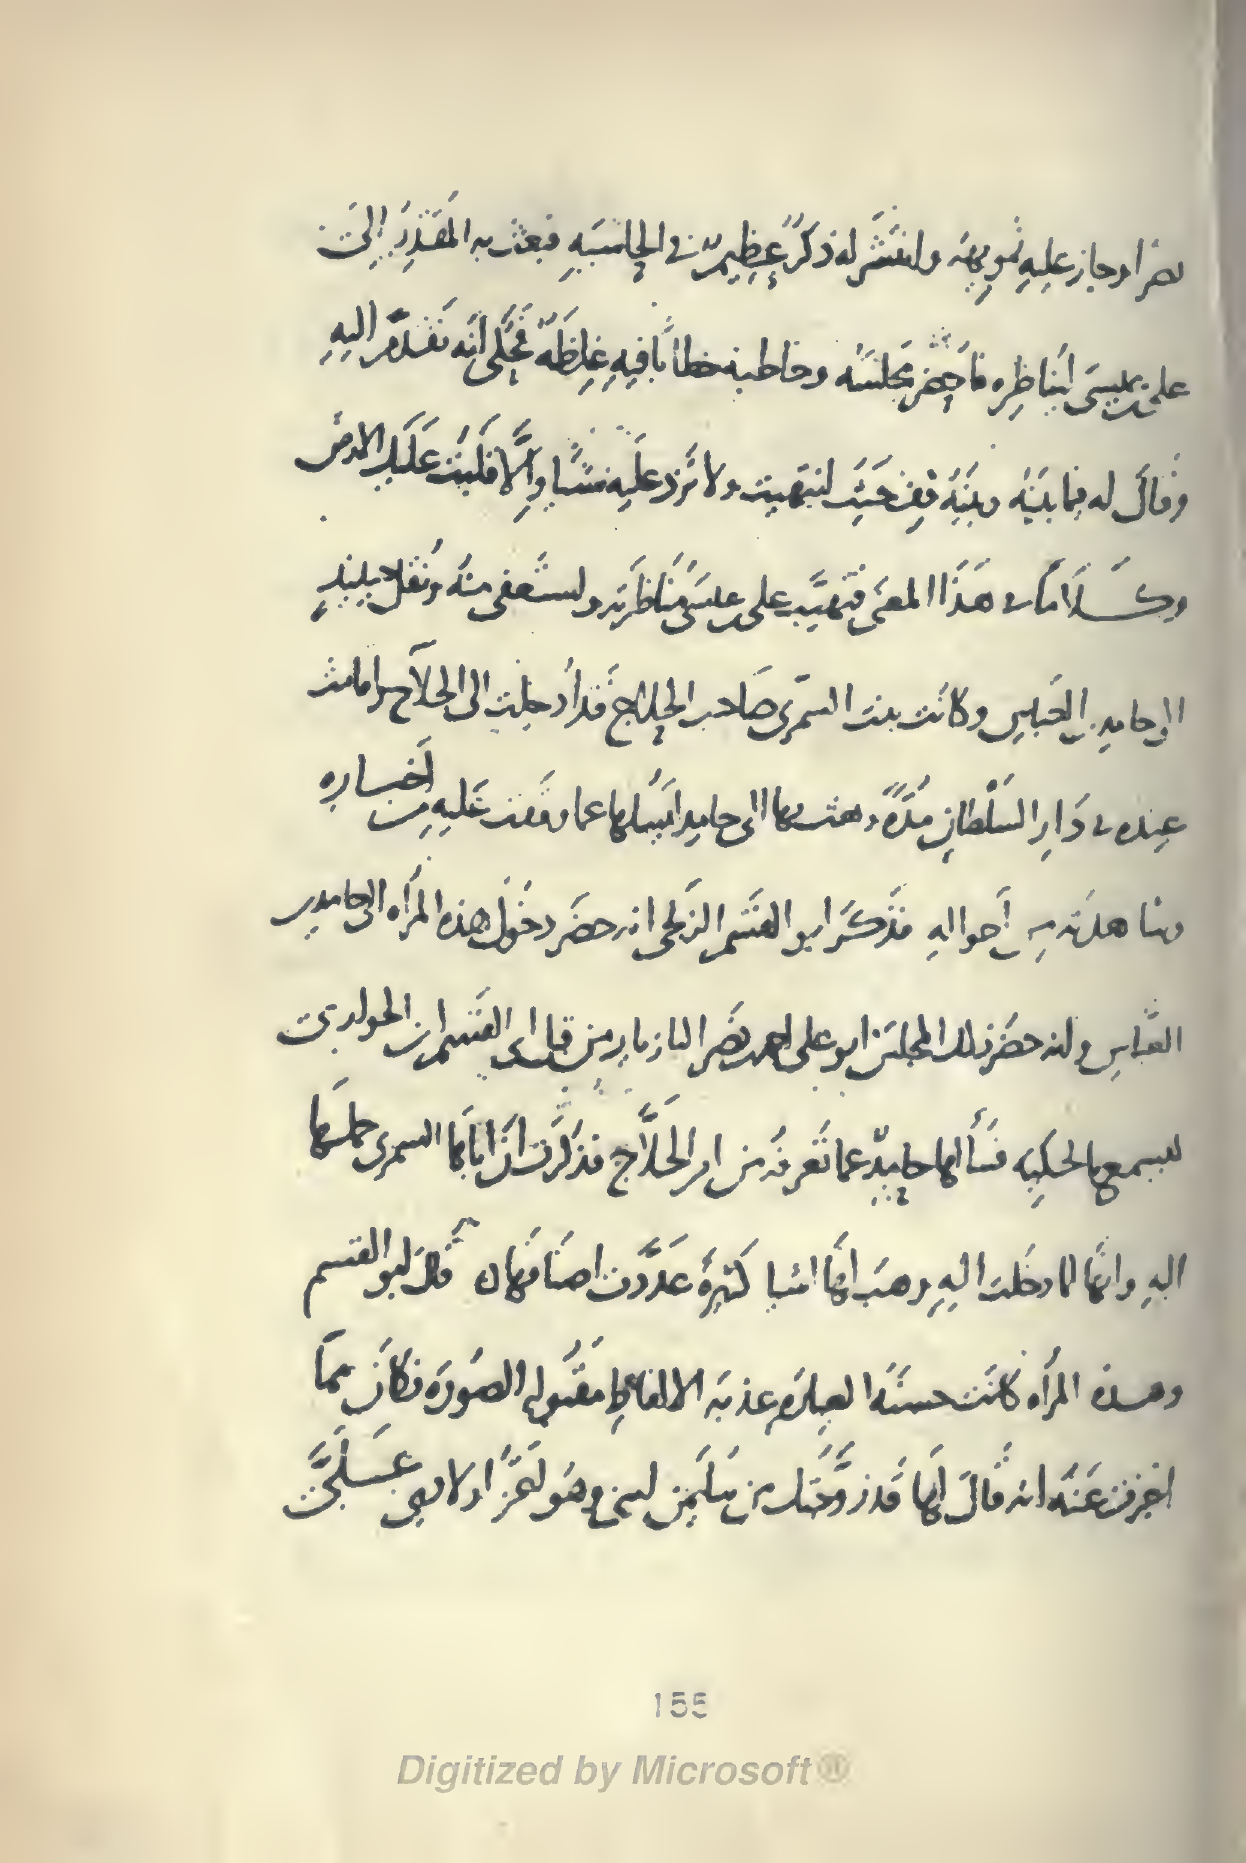 نصرا وجاز عليه تمويهه وانتشر له ذكر عظيم في الحاشيه فبعث به المقتدر الى
على بن عيسى ليناظره فاحضر مجلسه وخاطبه خطابا فيه غلظة فحكى انه تقدم اليه
وقال له فيما بينه وبينه قف حيث انتهيت ولا تزد عليه شيا والا قلبت عليك الارض
وكلاما فى هذا المعنى فتهيب على بن عيسى مناظرته واستعفى منه ونقل حينيذ
الى حامد بن العباس وكانت بنت السمرى صاحب الحلاج قد ادخلت الى الحلاج واقامت
عنده فى دار السلطان مدة وبعث بها الى حامد ليسلها عما وقفت عليه من اخباره
وشاهدته من احواله فذكر ابو القسم الزنجى انه حضر دخول هذه المرأه الى حامد بن
العباس وانه حضر ذلك المجلس ابو على احمد بن نصر البازيار من قبل ابى القسم ابن الحوارى
ليسمع ما تحكيه فسألها حامد عما تعرفه من امر الحلاج فذكرت ان اباها السمرى حملها
اليه وانها لما دخلت اليه وهب لها اشيا كثيرة عددت اصنافها قال ابو القسم
وهذه المرأه كانت حسنة العبارة عذبة الالفاظ مقبولة الصورة فكان مما
اخبرت عنه انه قال لها قد زوجتك من سليمن ابنى وهو اعز اولادى على
155
Digitized by Microsoft®